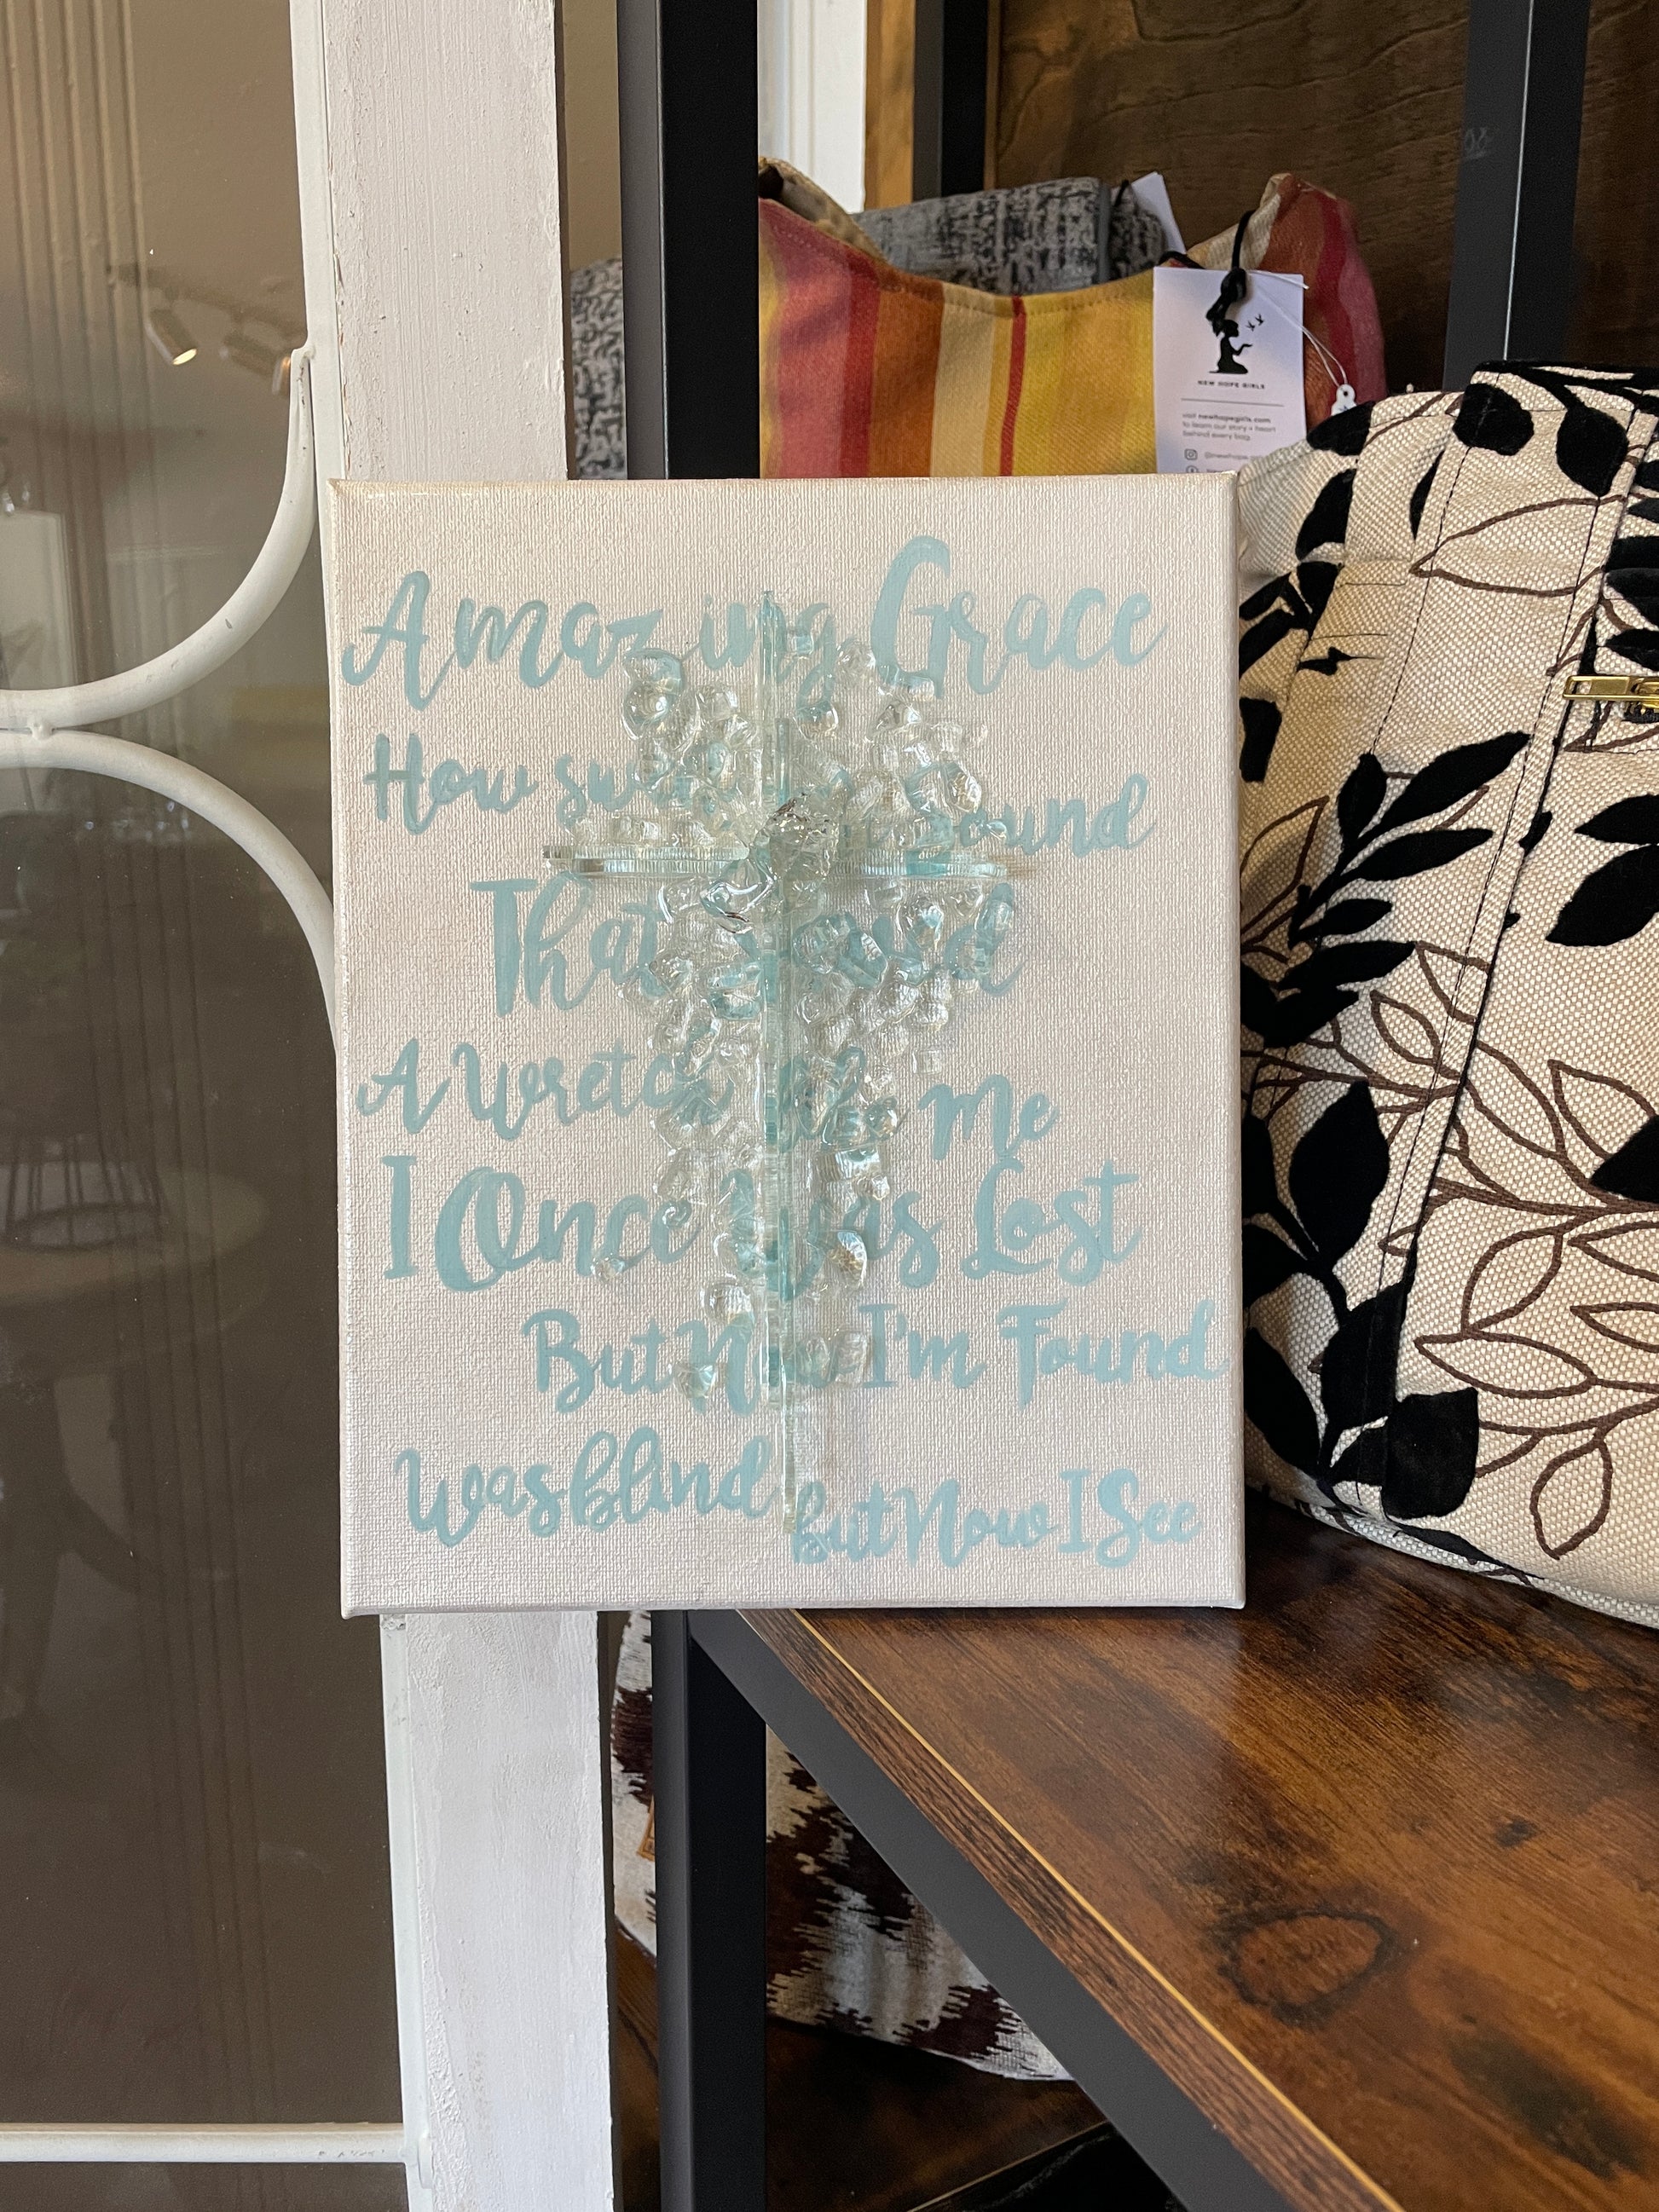 NEW HOPE GIRLS
visit newhopegirls.com
to learn our story + heart
behind every bag.
Amazing Grace
How
That
A Wretch Me
I Once Was Lost
But Now I'm Found
Was blind but Now I See